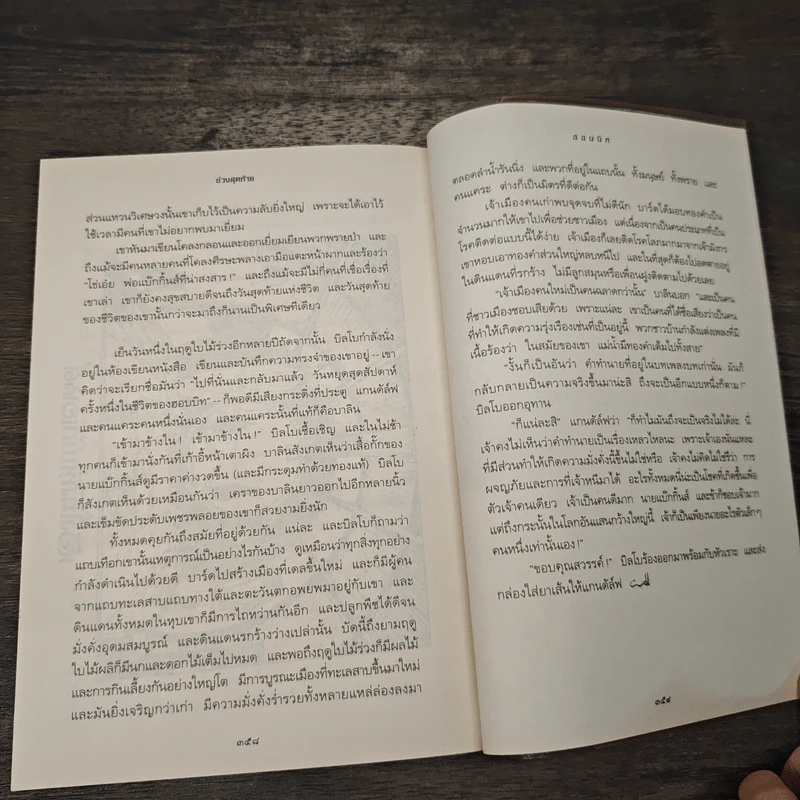 ช่วงสุดท้าย
ส่วนแหวนวิเศษวงนั้นเขาเก็บไว้เป็นความลับยิ่งใหญ่ เพราะจะได้เอาไว้
ใช้เวลามีคนที่เขาไม่อยากพบมาเยี่ยม
เขาหันมาเขียนโคลงกลอนและออกเยี่ยมเยียนพวกพรายป่า และ
ถึงแม้จะมีคนหลายคนที่โคลงศีรษะพลางเอามือแตะหน้าผากและร้องว่า
"โซ่เอ๋ย พ่อแบ๊กกิ้นส์ที่น่าสงสาร !" และถึงแม้จะมีไม่กี่คนที่เชื่อเรื่องที่
เขาเล่า เขาก็ยังคงสุขสบายดีจนถึงวันสุดท้ายแห่งชีวิต และวันสุดท้าย
ของชีวิตของเขานั้นกว่าจะมาถึงก็นานเป็นพิเศษทีเดียว
เย็นวันหนึ่งในฤดูใบไม้ร่วงอีกหลายปีถัดจากนั้น บิลโบกำลังนั่ง
อยู่ในห้องเขียนหนังสือ เขียนและบันทึกความทรงจำของเขาอยู่ -- เขา
คิดว่าจะเรียกชื่อมันว่า "ไปที่นั่นและกลับมาแล้ว วันหยุดสุดสัปดาห์
ครั้งหนึ่งในชีวิตของฮอบบิท" -- ก็พอดีมีเสียงกระดิ่งที่ประตู แกนดัล์ฟ
และคนแคระคนหนึ่งนั่นเอง และคนแคระนั้นที่แท้ก็คือบาลิน
"เข้ามาข้างใน ! เข้ามาข้างใน !" บิลโบเชื้อเชิญ และในไม่ช้า
ทุกคนก็เข้ามานั่งกันที่เก้าอี้หน้าเตาผิง บาลินสังเกตเห็นว่าเสื้อกั๊กของ
นายแบ๊กกิ้นส์ดูมีราคาค่างวดขึ้น (และมีกระดุมทำด้วยทองแท้) บิลโบ
ก็สังเกตเห็นด้วยเหมือนกันว่า เคราของบาลินยาวออกไปอีกหลายนิ้ว
และเข็มขัดประดับเพชรพลอยของเขาก็สวยงามยิ่งนัก
ทั้งหมดคุยกันถึงสมัยที่อยู่ด้วยกัน แน่ละ และบิลโบก็ถามว่า
แถบเทือกเขานั้นเหตุการณ์เป็นอย่างไรกันบ้าง ดูเหมือนว่าทุกสิ่งทุกอย่าง
กำลังดำเนินไปด้วยดี บาร์ดไปสร้างเมืองที่เดลขึ้นใหม่ และก็มีผู้คน
จากแถบทะเลสาบแถบทางใต้และตะวันตกอพยพมาอยู่กับเขา และ
ดินแดนทั้งหมดในหุบเขาก็มีการไถหว่านกันอีก และปลูกพืชได้ดีจน
มั่งคั่งอุดมสมบูรณ์ และดินแดนรกร้างว่างเปล่านั้น บัดนี้ถึงยามฤดู
ใบไม้ผลิก็มีนกและดอกไม้เต็มไปหมด และพอถึงฤดูใบไม้ร่วงก็มีผลไม้
และการกินเลี้ยงกันอย่างใหญ่โต มีการบูรณะเมืองที่ทะเลสาบขึ้นมาใหม่
และมันยิ่งเจริญกว่าเก่า มีความมั่งคั่งร่ำรวยทั้งหลายแหล่ล่องลงมา
๓๕๘
ฮอบบิท
ตลอดลำน้ำวันนิ่ง และพวกที่อยู่ในแถบนั้น ทั้งมนุษย์ ทั้งพราย และ
คนแคระ ต่างก็เป็นมิตรที่ดีต่อกัน
เจ้าเมืองคนเก่าพบจุดจบที่ไม่ดีนัก บาร์ดได้มอบทองคำเป็น
จำนวนมากให้เขาไปเพื่อช่วยชาวเมือง แต่เนื่องจากเป็นคนประเภทที่เป็น
โรคติดต่อแบบนี้ได้ง่าย เจ้าเมืองก็เลยติดโรคโลภมากมาจากเจ้ามังกร
เขาหอบเอาทองคำส่วนใหญ่หลบหนีไป และในที่สุดก็ต้องไปอดตายอยู่
ในดินแดนที่รกร้าง ไม่มีลูกสมุนหรือเพื่อนฝูงติดตามไปด้วยเลย
"เจ้าเมืองคนใหม่เป็นคนฉลาดกว่านั้น" บาลินบอก "และเป็นคน
ที่ชาวเมืองชอบเสียด้วย เพราะแน่ละ เขาเป็นคนที่ได้ชื่อเสียงว่าเป็นคน
ที่ทำให้เกิดความรุ่งเรืองเช่นที่เป็นอยู่นี้ พวกชาวบ้านกำลังแต่งเพลงที่มี
เนื้อร้องว่า ในสมัยของเขา แม่น้ำมีทองคำเต็มไปทั้งสาย"
"งั้นก็เป็นอันว่า คำทำนายที่อยู่ในบทเพลงบทเก่านั้น มันก็
กลับกลายเป็นความจริงขึ้นมาน่ะสิ ถึงจะเป็นอีกแบบหนึ่งก็ตาม !"
บิลโบออกอุทาน
"ก็แน่ละสิ" แกนดัล์ฟว่า "ก็ทำไมมันถึงจะเป็นจริงไม่ได้ล่ะ นี่
เจ้าคงไม่เห็นว่าคำทำนายเป็นเรื่องเหลวไหลนะ เพราะเจ้าเองนั่นแหละ
ที่มีส่วนทำให้เกิดความมั่งคั่งนี้ขึ้นไม่ใช่หรือ เจ้าคงไม่คิดไม่ใช่รึว่า การ
ผจญภัยและการที่เจ้าหนีมาได้ อะไรทั้งหมดนี่น่ะเป็นโชคที่เกิดขึ้นเพื่อ
ตัวเจ้าคนเดียว เจ้าเป็นคนดีมาก นายแบ๊กกิ้นส์ และข้าก็ชอบเจ้ามาก
แต่ถึงกระนั้นในโลกอันแสนกว้างใหญ่นี้ เจ้าก็เป็นเพียงนายอะไรตัวเล็กๆ
คนหนึ่งเท่านั้นเอง !"
"ขอบคุณสวรรค์ !" บิลโบร้องออกมาพร้อมกับหัวเราะ และส่ง
กล่องใส่ยาเส้นให้แกนดัล์ฟ
๓๕๙